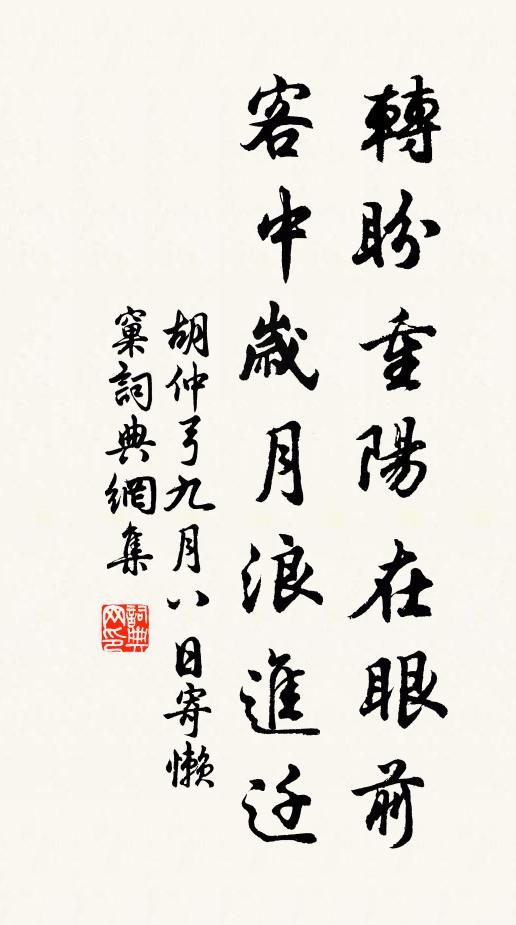 轉盼重陽在眼前
客中歲月浪進迁
胡仲弓九月八日寄懶
窠詞典網集
詞典
网印